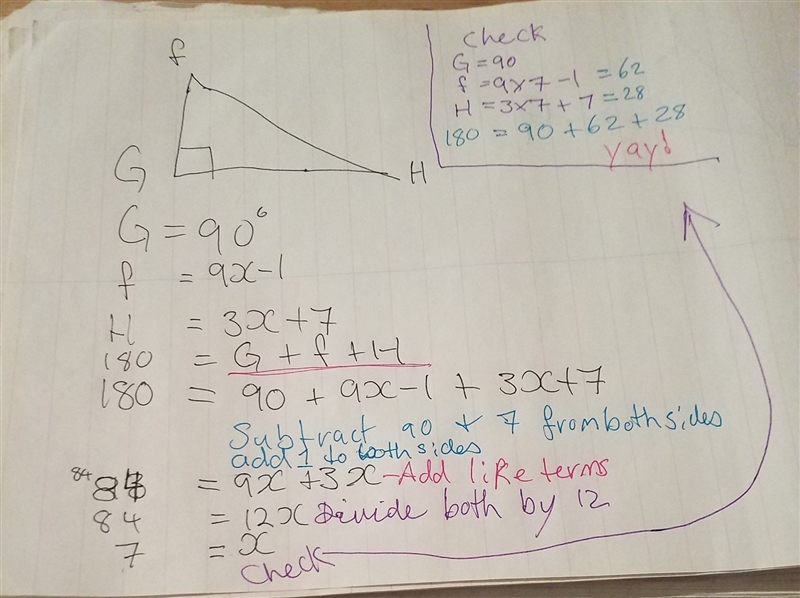 f
G
H
G = 90°
f = 9x-1
H = 3x+7
180 = G + f + H
180 = 90 + 9x-1 + 3x+7
Subtract 90 + 7 from both sides
add 1 to both sides
84 = 9x + 3x - Add like terms
84 = 12x Divide both by 12
7 = x
Check
Check
G = 90
f = 9x7 - 1 = 62
H = 3x7 + 7 = 28
180 = 90 + 62 + 28
yay!